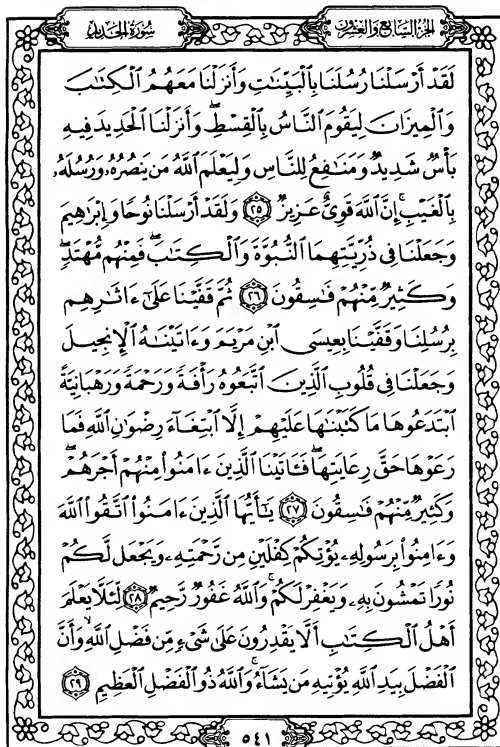 الجزء السابع والعشرون سورة الحديد
لَقَدْ أَرْسَلْنَا رُسُلَنَا بِالْبَيِّنَٰتِ وَأَنزَلْنَا مَعَهُمُ الْكِتَٰبَ
وَالْمِيزَانَ لِيَقُومَ النَّاسُ بِالْقِسْطِ ۖ وَأَنزَلْنَا الْحَدِيدَ فِيهِ
بَأْسٌ شَدِيدٌ وَمَنَٰفِعُ لِلنَّاسِ وَلِيَعْلَمَ اللَّهُ مَن يَنصُرُهُۥ وَرُسُلَهُۥ
بِالْغَيْبِ ۚ إِنَّ اللَّهَ قَوِىٌّ عَزِيزٌ ٢٥ وَلَقَدْ أَرْسَلْنَا نُوحًا وَإِبْرَٰهِيمَ
وَجَعَلْنَا فِى ذُرِّيَّتِهِمَا النُّبُوَّةَ وَالْكِتَٰبَ ۖ فَمِنْهُم مُّهْتَدٍ ۖ
وَكَثِيرٌ مِّنْهُمْ فَٰسِقُونَ ٢٦ ثُمَّ قَفَّيْنَا عَلَىٰٓ ءَاثَٰرِهِم
بِرُسُلِنَا وَقَفَّيْنَا بِعِيسَى ابْنِ مَرْيَمَ وَءَاتَيْنَٰهُ الْإِنجِيلَ
وَجَعَلْنَا فِى قُلُوبِ الَّذِينَ اتَّبَعُوهُ رَأْفَةً وَرَحْمَةً وَرَهْبَانِيَّةً
ابْتَدَعُوهَا مَا كَتَبْنَٰهَا عَلَيْهِمْ إِلَّا ابْتِغَآءَ رِضْوَٰنِ اللَّهِ فَمَا
رَعَوْهَا حَقَّ رِعَايَتِهَا ۖ فَـَٔاتَيْنَا الَّذِينَ ءَامَنُوا۟ مِنْهُمْ أَجْرَهُمْ ۖ
وَكَثِيرٌ مِّنْهُمْ فَٰسِقُونَ ٢٧ يَٰٓأَيُّهَا الَّذِينَ ءَامَنُوا۟ اتَّقُوا۟ اللَّهَ
وَءَامِنُوا۟ بِرَسُولِهِۦ يُؤْتِكُمْ كِفْلَيْنِ مِن رَّحْمَتِهِۦ وَيَجْعَل لَّكُمْ
نُورًا تَمْشُونَ بِهِۦ وَيَغْفِرْ لَكُمْ ۚ وَاللَّهُ غَفُورٌ رَّحِيمٌ ٢٨ لِّئَلَّا يَعْلَمَ
أَهْلُ الْكِتَٰبِ أَلَّا يَقْدِرُونَ عَلَىٰ شَىْءٍ مِّن فَضْلِ اللَّهِ ۙ وَأَنَّ
الْفَضْلَ بِيَدِ اللَّهِ يُؤْتِيهِ مَن يَشَآءُ ۚ وَاللَّهُ ذُو الْفَضْلِ الْعَظِيمِ ٢٩
٥٤١